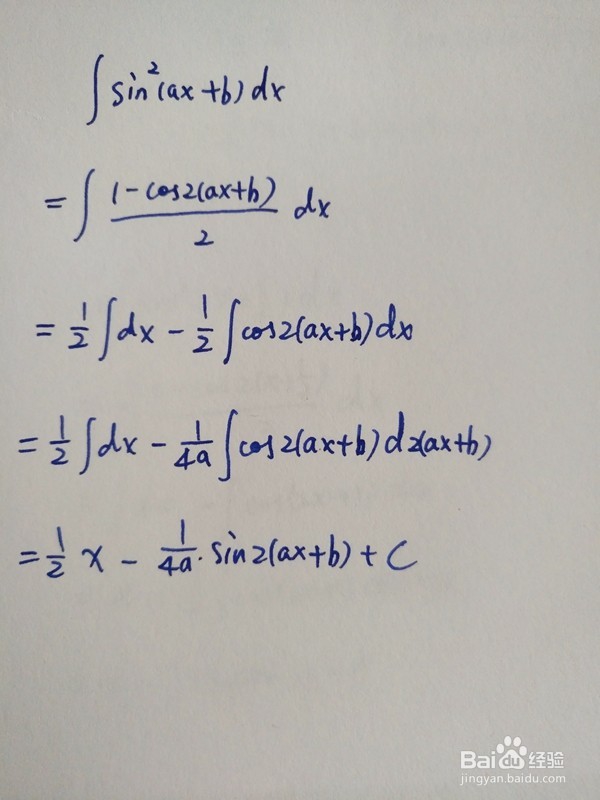 ∫ sin²(ax+b) dx
= ∫ (1-cos2(ax+b))/2 dx
= 1/2 ∫ dx - 1/2 ∫ cos2(ax+b) dx
= 1/2 ∫ dx - 1/4a ∫ cos2(ax+b) d2(ax+b)
= 1/2 x - 1/4a · sin2(ax+b) + C
Baidu经验
jingyan.baidu.com